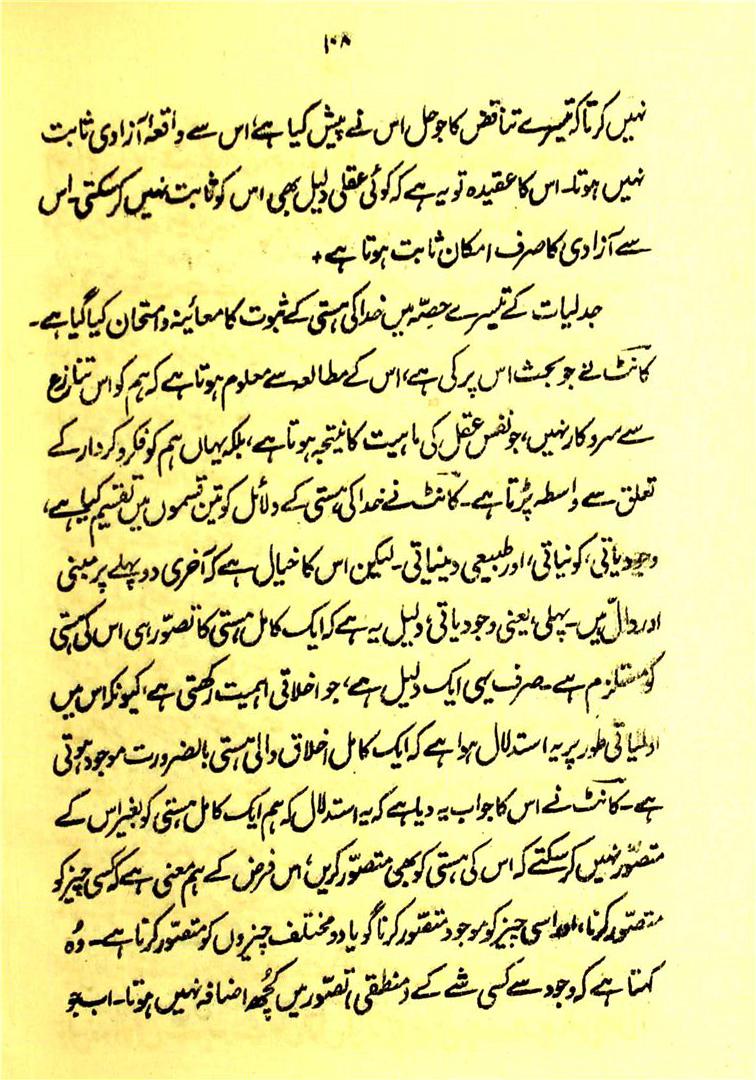 ۱۰۸
نہیں کرتا کہ تیسرے تناقض کا جو حل اس نے پیش کیا ہے، اس سے واقعۂ آزادی ثابت
نہیں ہوتا۔ اس کا عقیدہ تو یہ ہے کہ کوئی عقلی دلیل بھی اس کو ثابت نہیں کرسکتی۔ اس
سے آزادی کا صرف امکان ثابت ہوتا ہے +
جدلیات کے تیسرے حصّہ میں خدا کی ہستی کے ثبوت کا معائنہ و امتحان کیا گیا ہے۔
کانٹ نے جو بحث اس پر کی ہے، اس کے مطالعہ سے معلوم ہوتا ہے کہ ہم کو اس تنازع
سے سروکار نہیں، جو نفس عقل کی ماہیت کا نتیجہ ہوتا ہے، بلکہ یہاں ہم کو فکر و کردار کے
تعلق سے واسطہ پڑتا ہے۔ کانٹ نے خدا کی ہستی کے دلائل کو تین قسموں میں تقسیم کیا ہے،
وجودیاتی، کونیاتی، اور طبیعی دینیاتی۔ لیکن اس کا خیال ہے کہ آخری دو پہلے پر مبنی
اور دالّ ہیں۔ پہلی، یعنی وجودیاتی، دلیل یہ ہے کہ ایک کامل ہستی کا تصوّر ہی اس کی ہستی
کو مستلزم ہے۔ صرف یہی ایک دلیل ہے، جو اخلاقی اہمیت رکھتی ہے، کیونکہ اس میں
اولیاتی طور پر یہ استدلال ہوا ہے کہ ایک کامل اخلاق والی ہستی بالضرورت موجود ہوتی
ہے۔ کانٹ نے اس کا جواب یہ دیا ہے کہ یہ استدلال کہ ہم ایک کامل ہستی کو بغیر اس کے
متصوّر نہیں کرسکتے کہ اس کی ہستی کو بھی متصوّر کریں، اس فرض کے ہم معنی ہے کہ کسی چیز کو
متصوّر کرنا، اور اسی چیز کو موجود متصوّر کرنا گویا دو مختلف چیزوں کو متصوّر کرنا ہے۔ وُہ
کہتا ہے کہ وجود سے کسی شے کے (منطقی) تصوّر میں کُچھ اضافہ نہیں ہوتا۔ اب جو